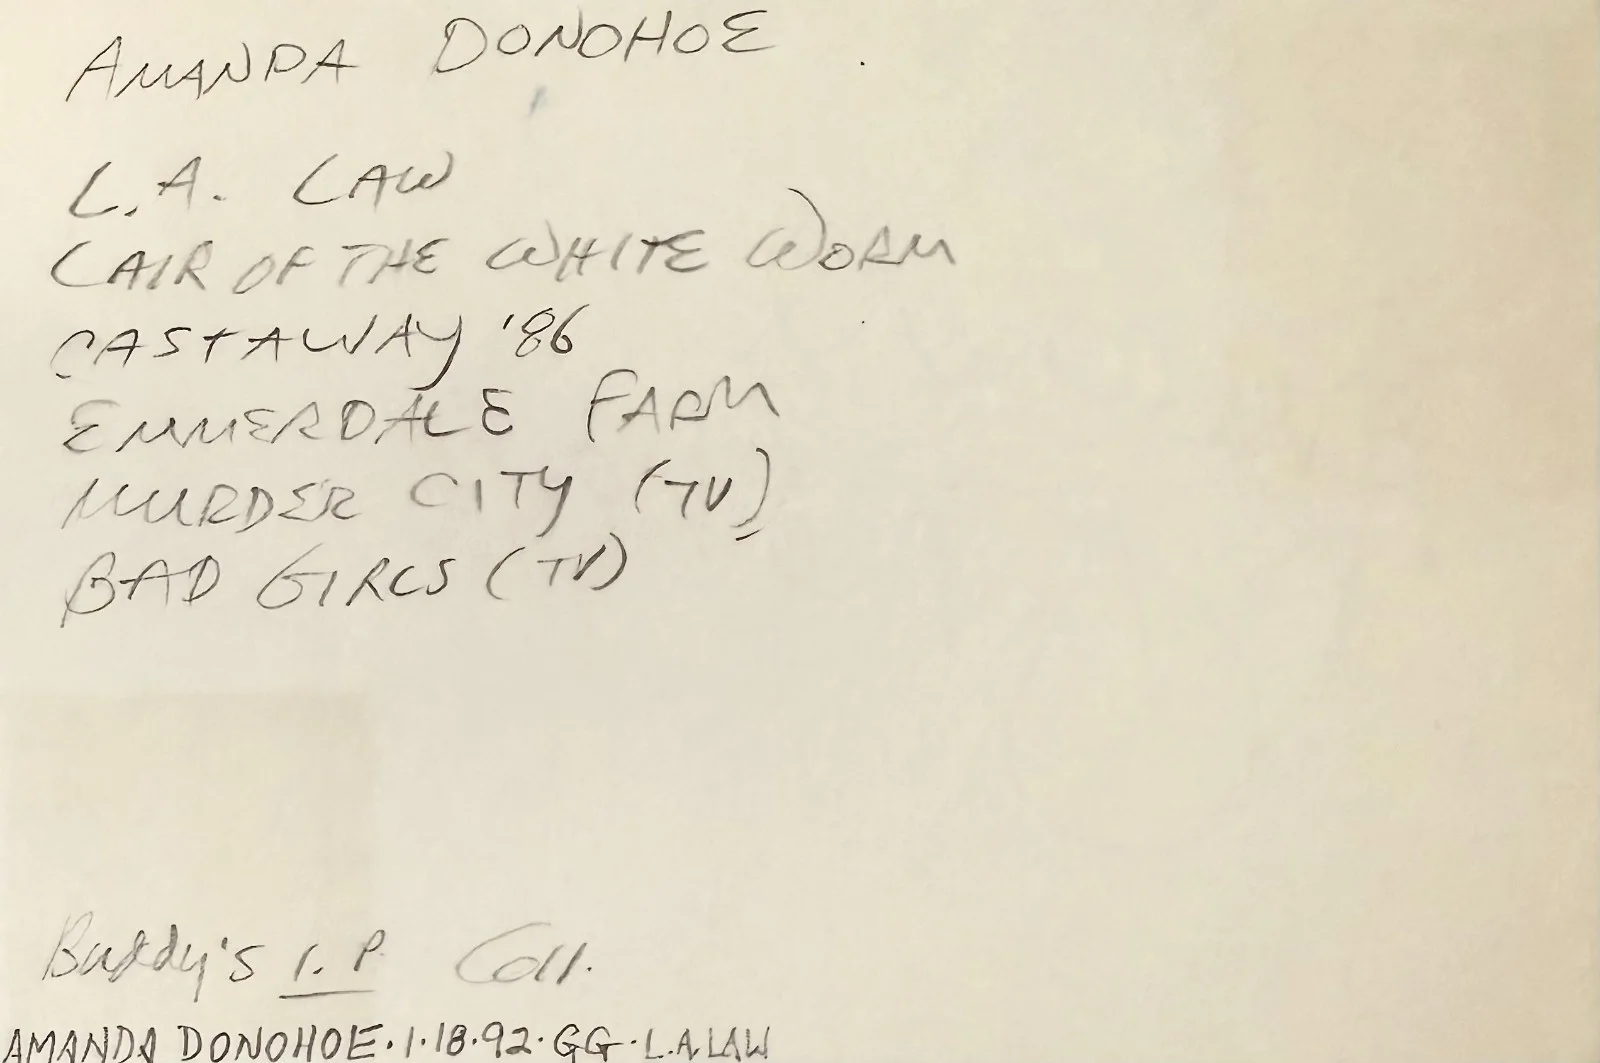 AMANDA DONOHOE
L.A. LAW
LAIR OF THE WHITE WORM
CASTAWAY '86
EMMERDALE FARM
MURDER CITY (TV)
BAD GIRLS (TV)
Buddy's I.P. Coll.
AMANDA DONOHOE·1·18·92·GG·L.A.LAW